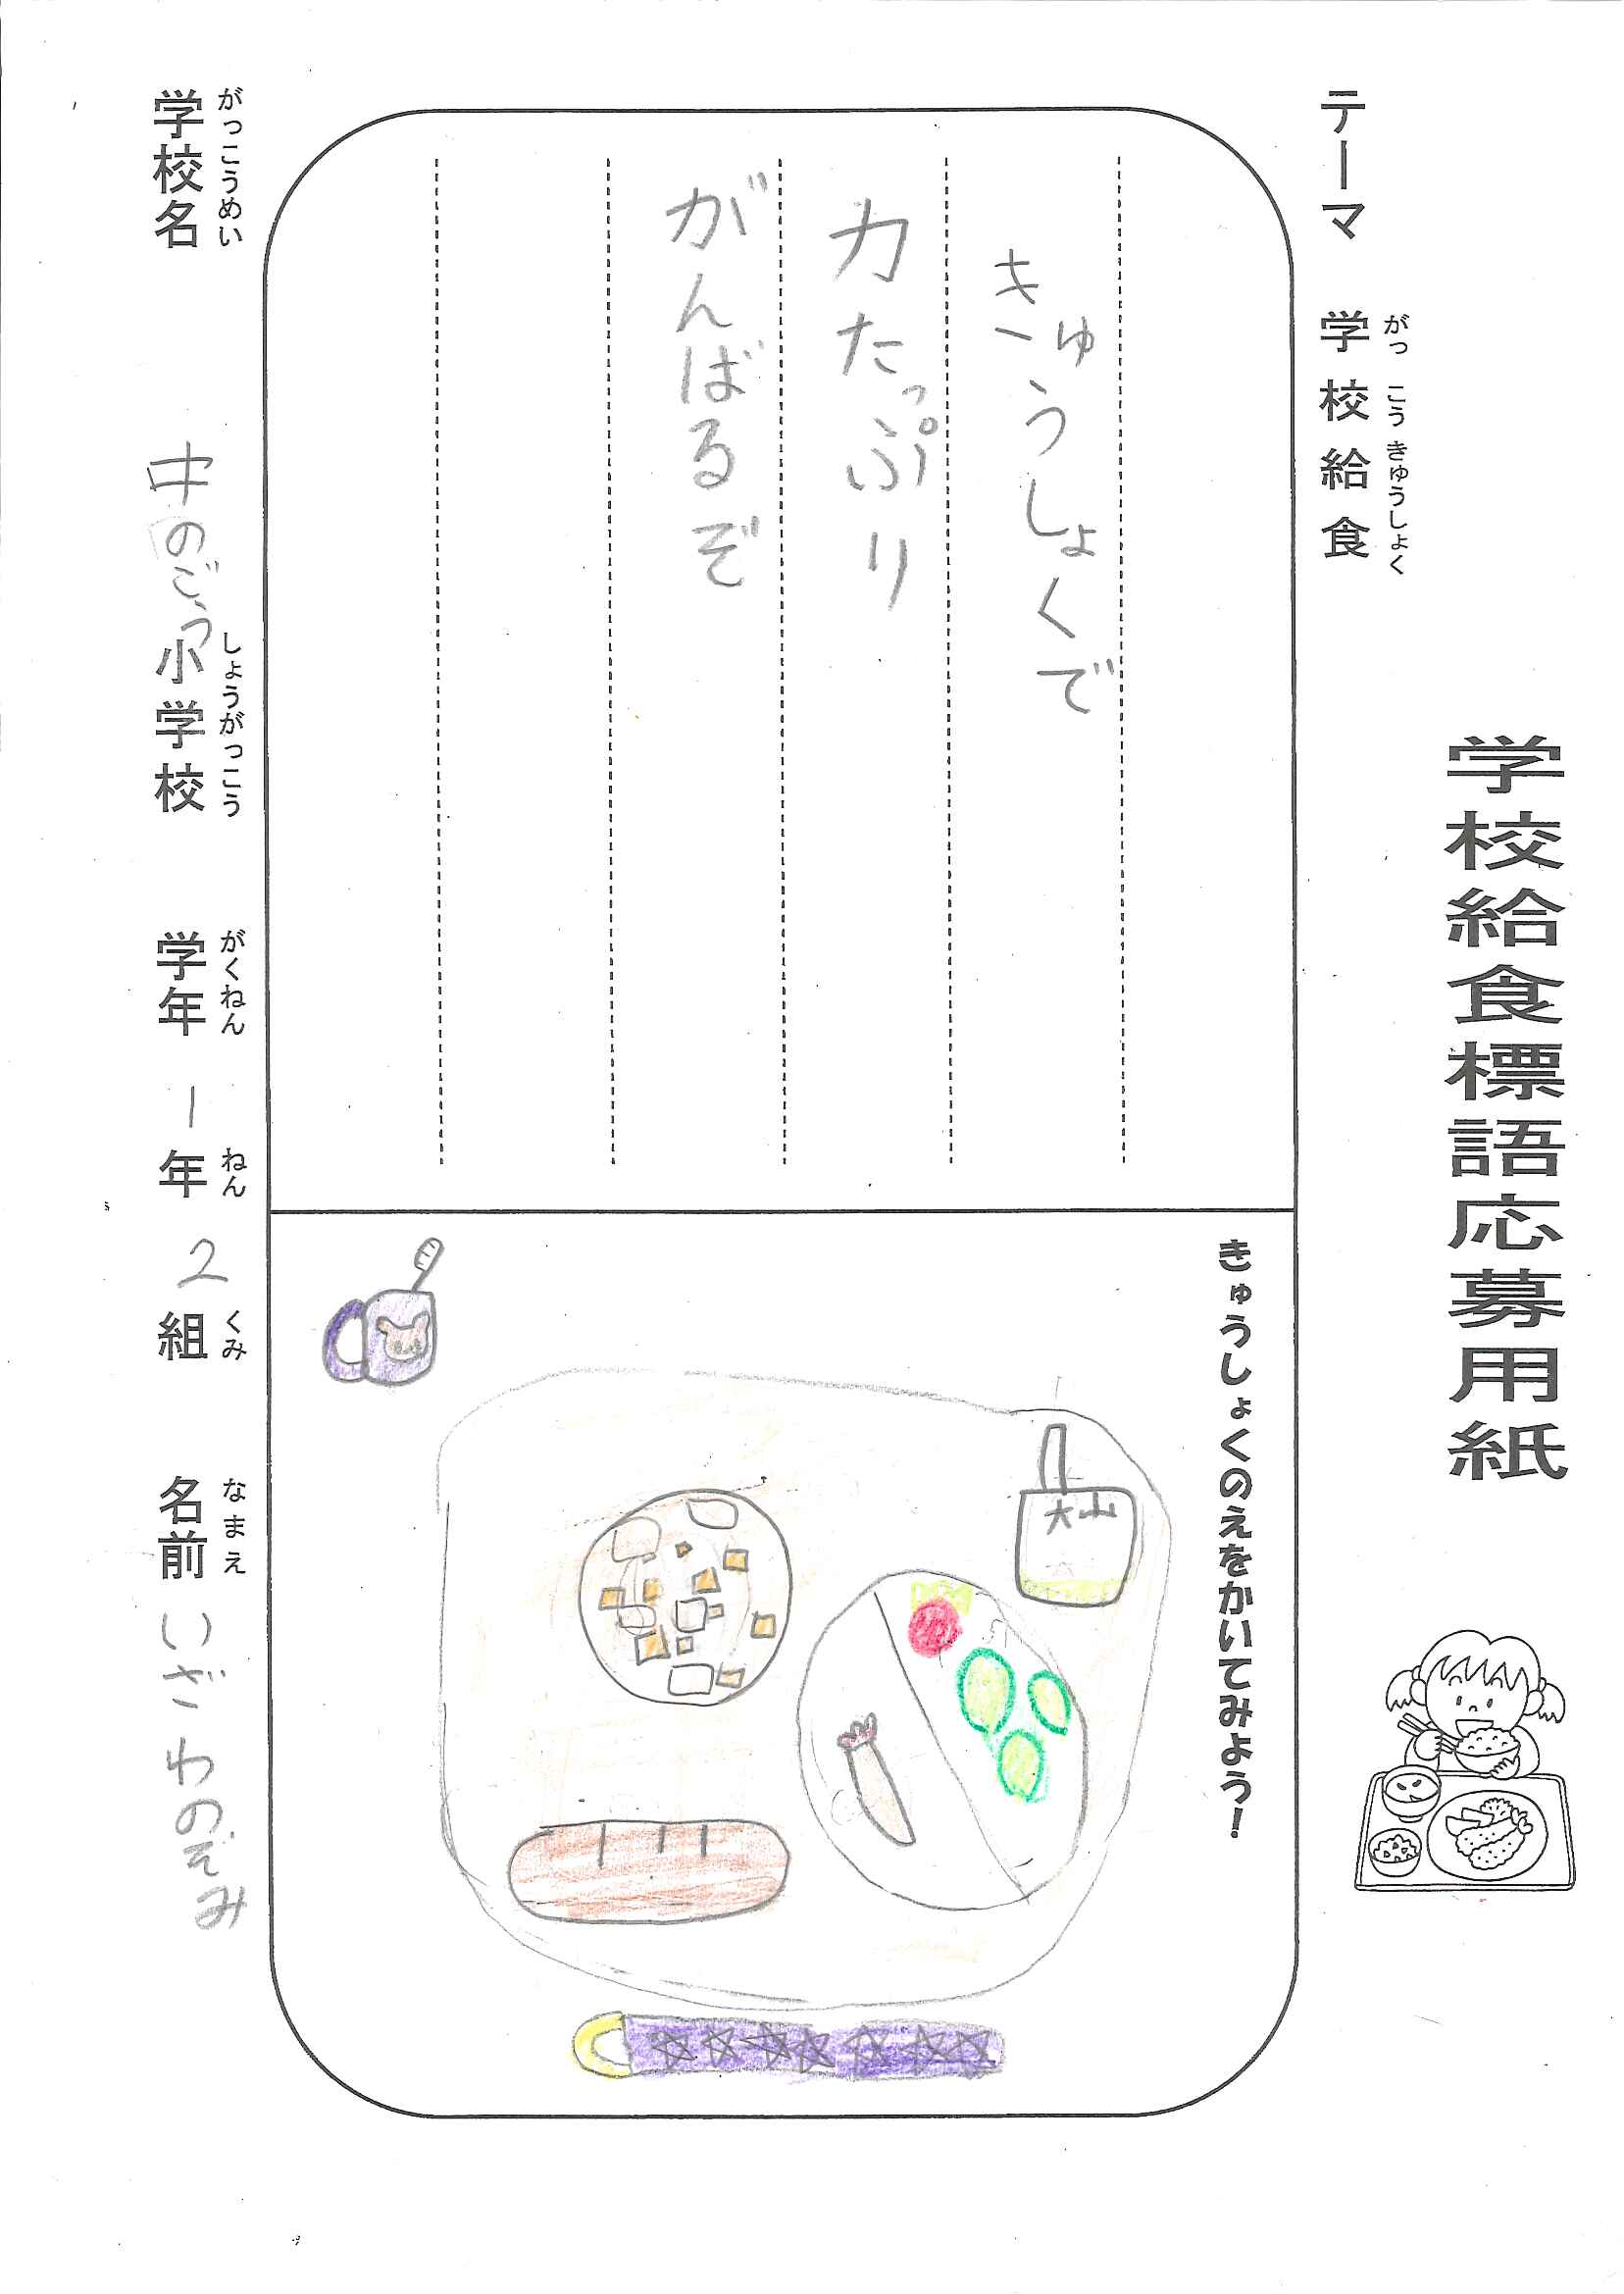 学校給食標語応募用紙
テーマ 学校給食
がっこうきゅうしょく
きゅうしょくで
力たっぷり
がんばるぞ
きゅうしょくのえをかいてみよう！
大山
がっこうめい しょうがっこう がくねん ねん くみ なまえ
学校名 中のごう小学校 学年 1年 2組 名前 いざわのぞみ